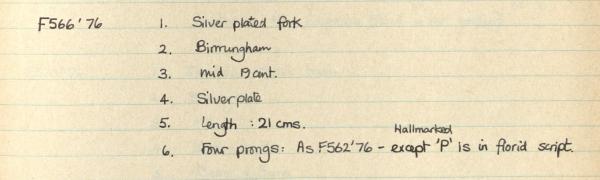 F566'76 1. Silver plated fork
2. Birmingham
3. mid 19 cent.
4. Silverplate
5. Length : 21 cms.
Hallmarked
6. Four prongs: As F562'76 - except 'P' is in florid script.